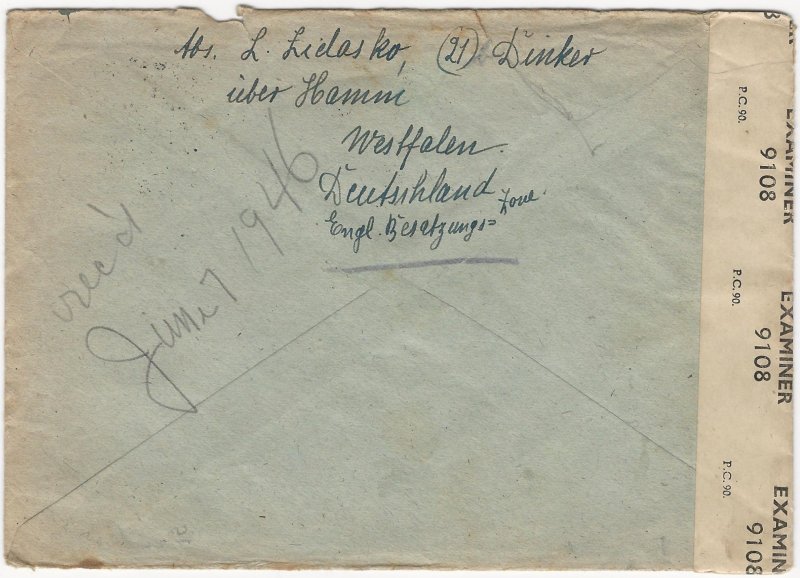 Abs. L. Lidasko, (21) Dinker
über Hamm
Westfalen
Deutschland
Engl. Besatzungs=
zone.
rec'd
June 7 1946
P.C. 90.
EXAMINER
9108
P.C. 90.
EXAMINER
9108
P.C. 90.
EXAMIN
9108